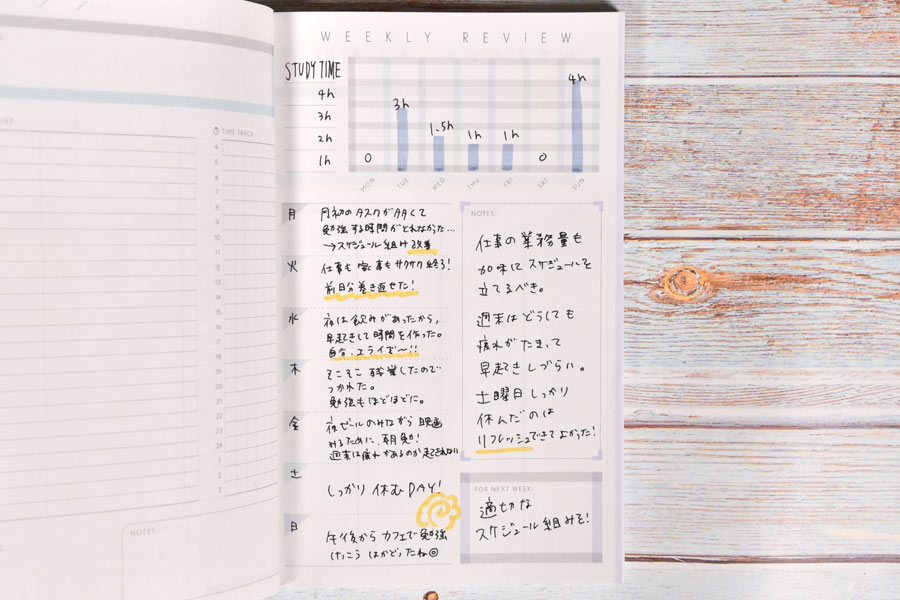 WEEKLY REVIEW
STUDY TIME
4h
3h
2h
1h
0
3h
1.5h
1h
1h
0
4h
MON
TUE
WED
THU
FRI
SAT
SUN
月
月初のタスクが多くて
勉強する時間がとれなかった…
→スケジュール組み改善
火
仕事も家事もサクサク終了!
前日分巻き返せた!
水
夜は飲みがあったから、
早起きして時間を作った。
自分、エライで〜!!
木
そこそこ残業したので
つかれた。
勉強もほどほどに。
金
夜ビールのみながら映画
みるために、朝勉!
週末は疲れがあるのか起きれない
土
しっかり休むDAY!
日
午後からカフェで勉強
けっこうはかどったね◎
NOTES
仕事の業務量も
加味してスケジュールを
立てるべき。
週末はどうしても
疲れがたまって
早起きしづらい。
土曜日しっかり
休んだのは
リフレッシュできてよかった!
FOR NEXT WEEK
適切な
スケジュール組みを!
LIST
TIME TRACK
4
5
6
7
8
9
10
11
12
13
14
15
16
17
18
19
20
21
22
23
24
1
2
3
NOTES